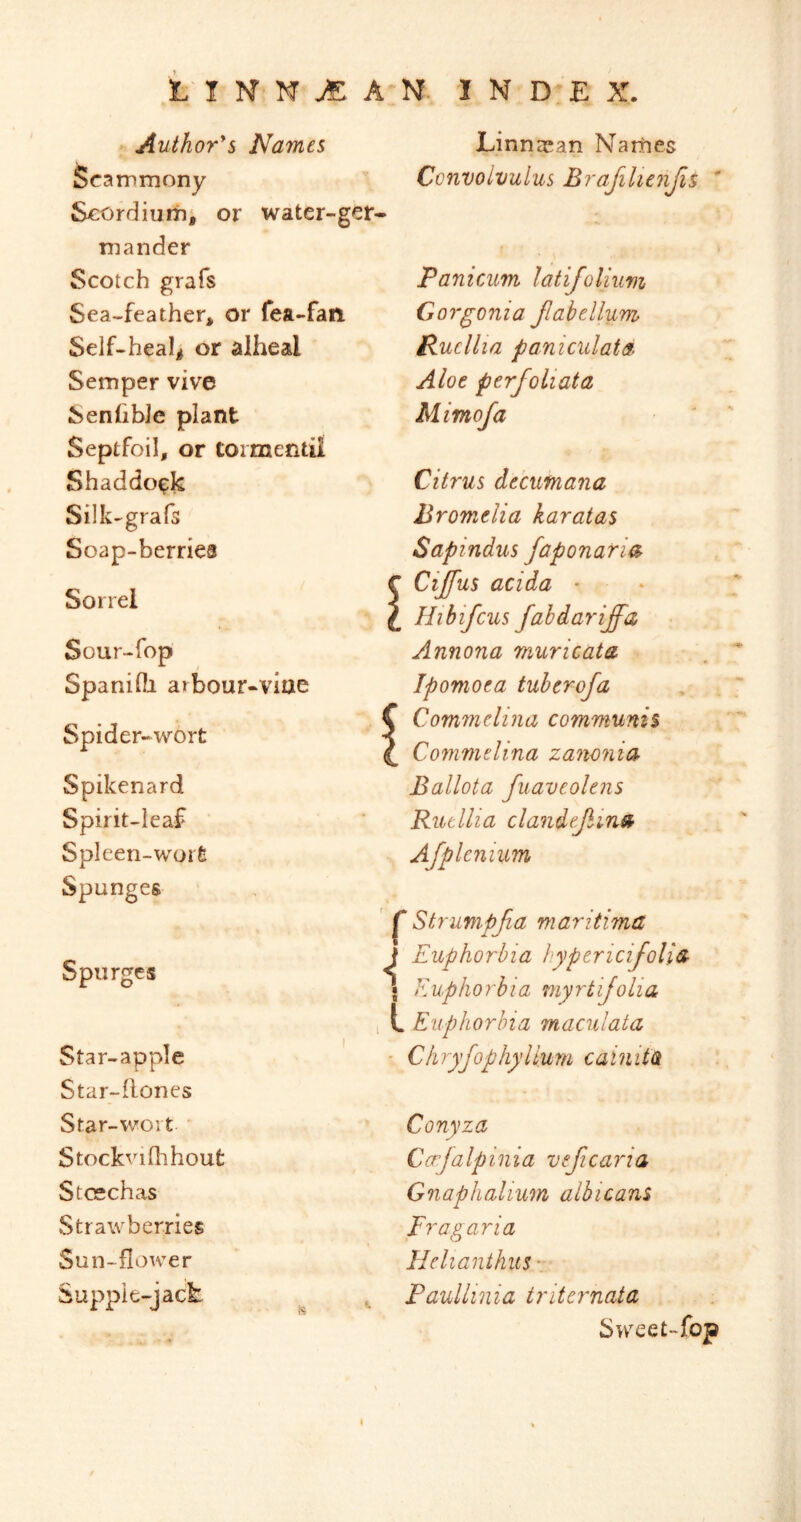 LINNÆAN INDEX.
Author's Names Linnæan Names
Scammony Convolvulus Braſilienſis
Scordium, or water-ger-
mander
Scotch graſs Panicum latifolium
Sea-feather, or ſea-fan Gorgonia flabellum
Self-heal, or alheal Ruellia paniculata
Semper vive Aloe perfoliata
Senſible plant Mimoſa
Septfoil, or tormentil
Shaddock Citrus decumana
Silk-graſs Bromelia karatas
Soap-berries Sapindus ſaponaria
Sorrel { Ciſſus acida
Hibiſcus ſabdariffa
Sour-ſop Annona muricata
Spaniſh arbour-vine Ipomoea tuberoſa
Spider-wort { Commelina communis
Commelina zanonia
Spikenard Ballota ſuaveolens
Spirit-leaf Ruellia clandeſtina
Spleen-wort Aſplenium
Spunges
Spurges { Strumpfia maritima
Euphorbia hypericifolia
Euphorbia myrtifolia
Euphorbia maculata
Star-apple Chryſophyllum cainita
Star-ſtones
Star-wort Conyza
Stockviſhhout Cæſalpinia veſicaria
Stœchas Gnaphalium albicans
Strawberries Fragaria
Sun-flower Helianthus
Supple-jack Paullinia triternata
Sweet-ſop